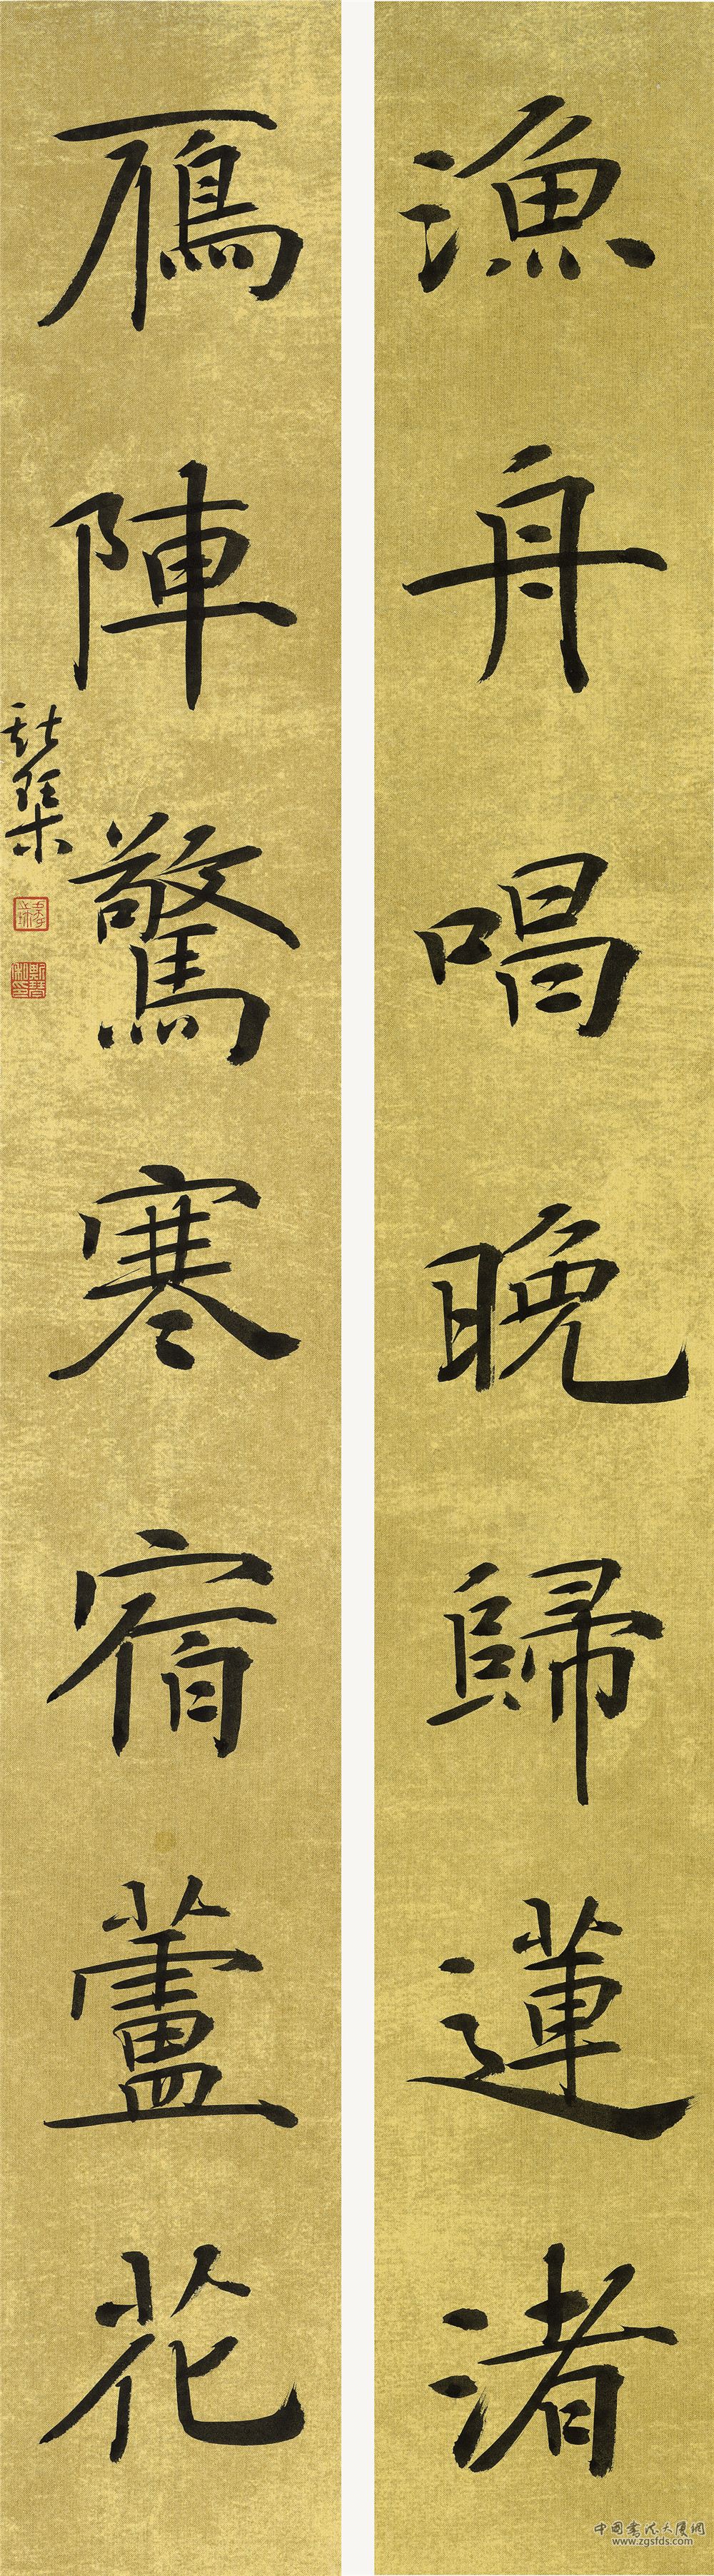 漁舟唱晚歸蓮渚
鴈陣驚寒宿蘆花
中国书法大厦网
www.zgsfds.com